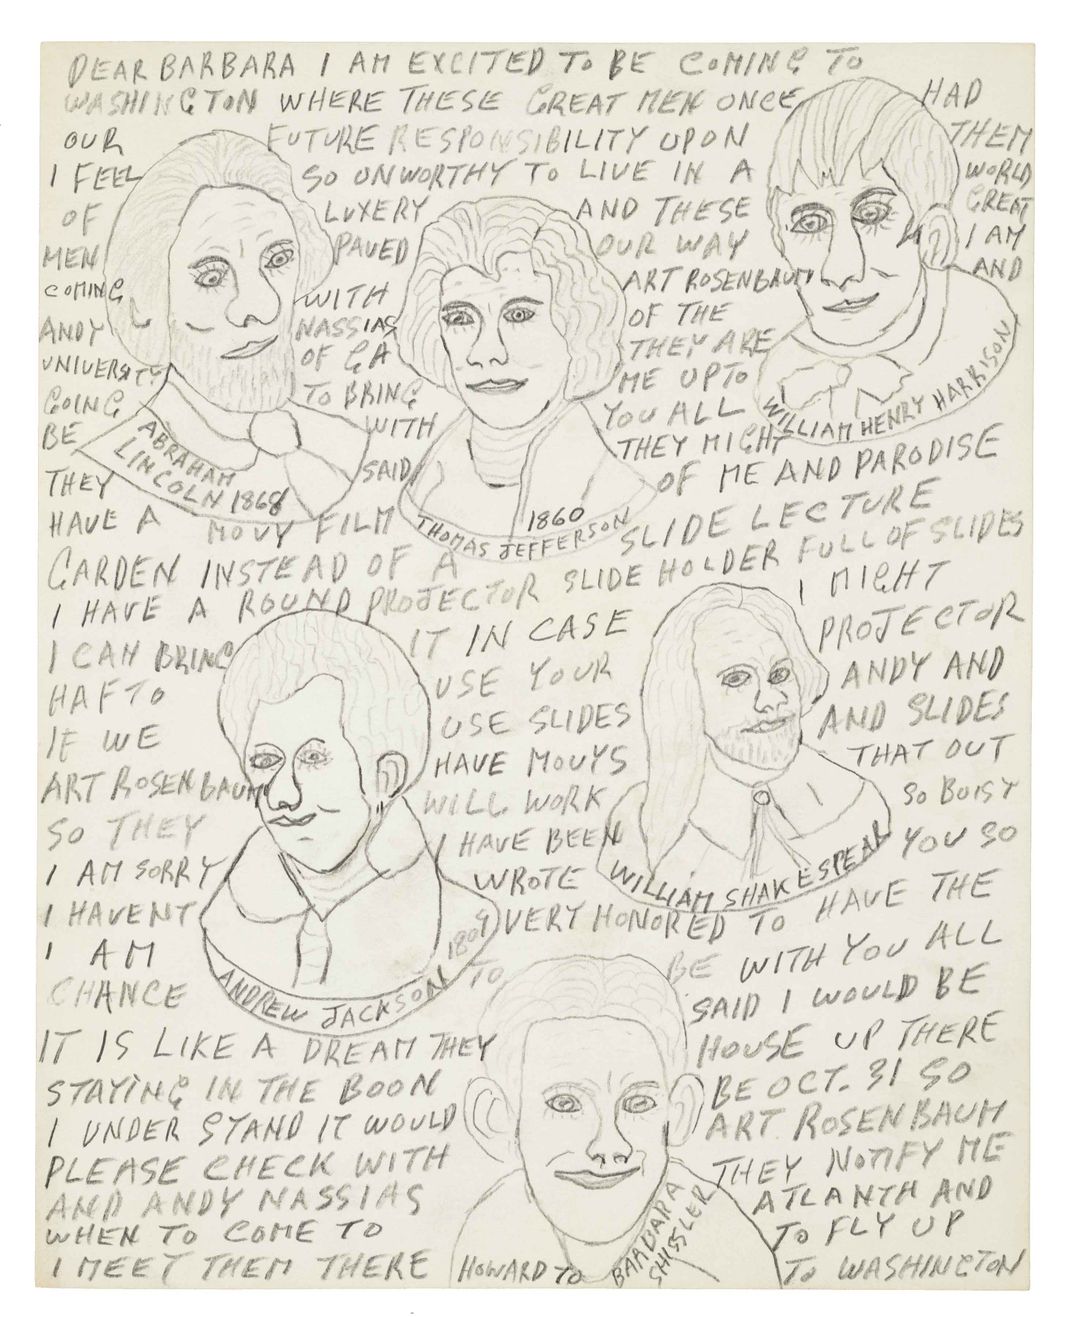 DEAR BARBARA I AM EXCITED TO BE COMING TO
WASHINGTON WHERE THESE GREAT MEN ONCE HAD
OUR FUTURE RESPONSIBILITY UPON THEM
I FEEL SO UNWORTHY TO LIVE IN A WORLD
OF LUXERY AND THESE GREAT
MEN PAVED OUR WAY I AM
COMING WITH ART ROSENBAUM AND
ANDY NASSIAS OF THE
UNIVERSITY OF GA THEY ARE
GOING TO BRING ME UP TO
BE WITH YOU ALL
THEY SAID THEY MIGHT
HAVE A MOVY FILM OF ME AND PARODISE
GARDEN INSTEAD OF A SLIDE LECTURE
I HAVE A ROUND PROJECTOR SLIDE HOLDER FULL OF SLIDES
I CAN BRING IT IN CASE I MIGHT
HAFTO USE YOUR PROJECTOR
IF WE USE SLIDES ANDY AND
ART ROSENBAUM HAVE MOUYS AND SLIDES
SO THEY WILL WORK THAT OUT
I AM SORRY I HAVE BEEN SO BUISY
I HAVENT WROTE YOU SO
I AM VERY HONORED TO HAVE THE
CHANCE TO BE WITH YOU ALL
IT IS LIKE A DREAM THEY SAID I WOULD BE
STAYING IN THE BOON HOUSE UP THERE
I UNDER STAND IT WOULD BE OCT. 31 SO
PLEASE CHECK WITH ART ROSENBAUM
AND ANDY NASSIAS THEY NOTIFY ME
WHEN TO COME TO ATLANTH AND
I MEET THEM THERE TO FLY UP
TO WASHINGTON
HOWARD TO BARBARA
SHISSLER
ABRAHAM
LINCOLN 1868
THOMAS JEFFERSON
1860
WILLIAM HENRY HARRISON
ANDREW JACKSON
1809
WILLIAM SHAKESPEAR